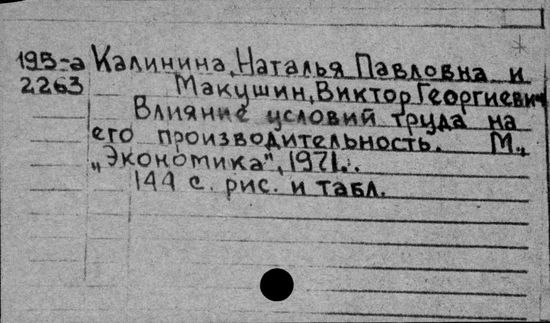 195-а Калинина, Наталья Павловна и
2263 Макушин, Виктор Георгиевич
Влияние условий труда на
его производительность. М.,
„Экономика", 1971.
144 с. рис. и табл.